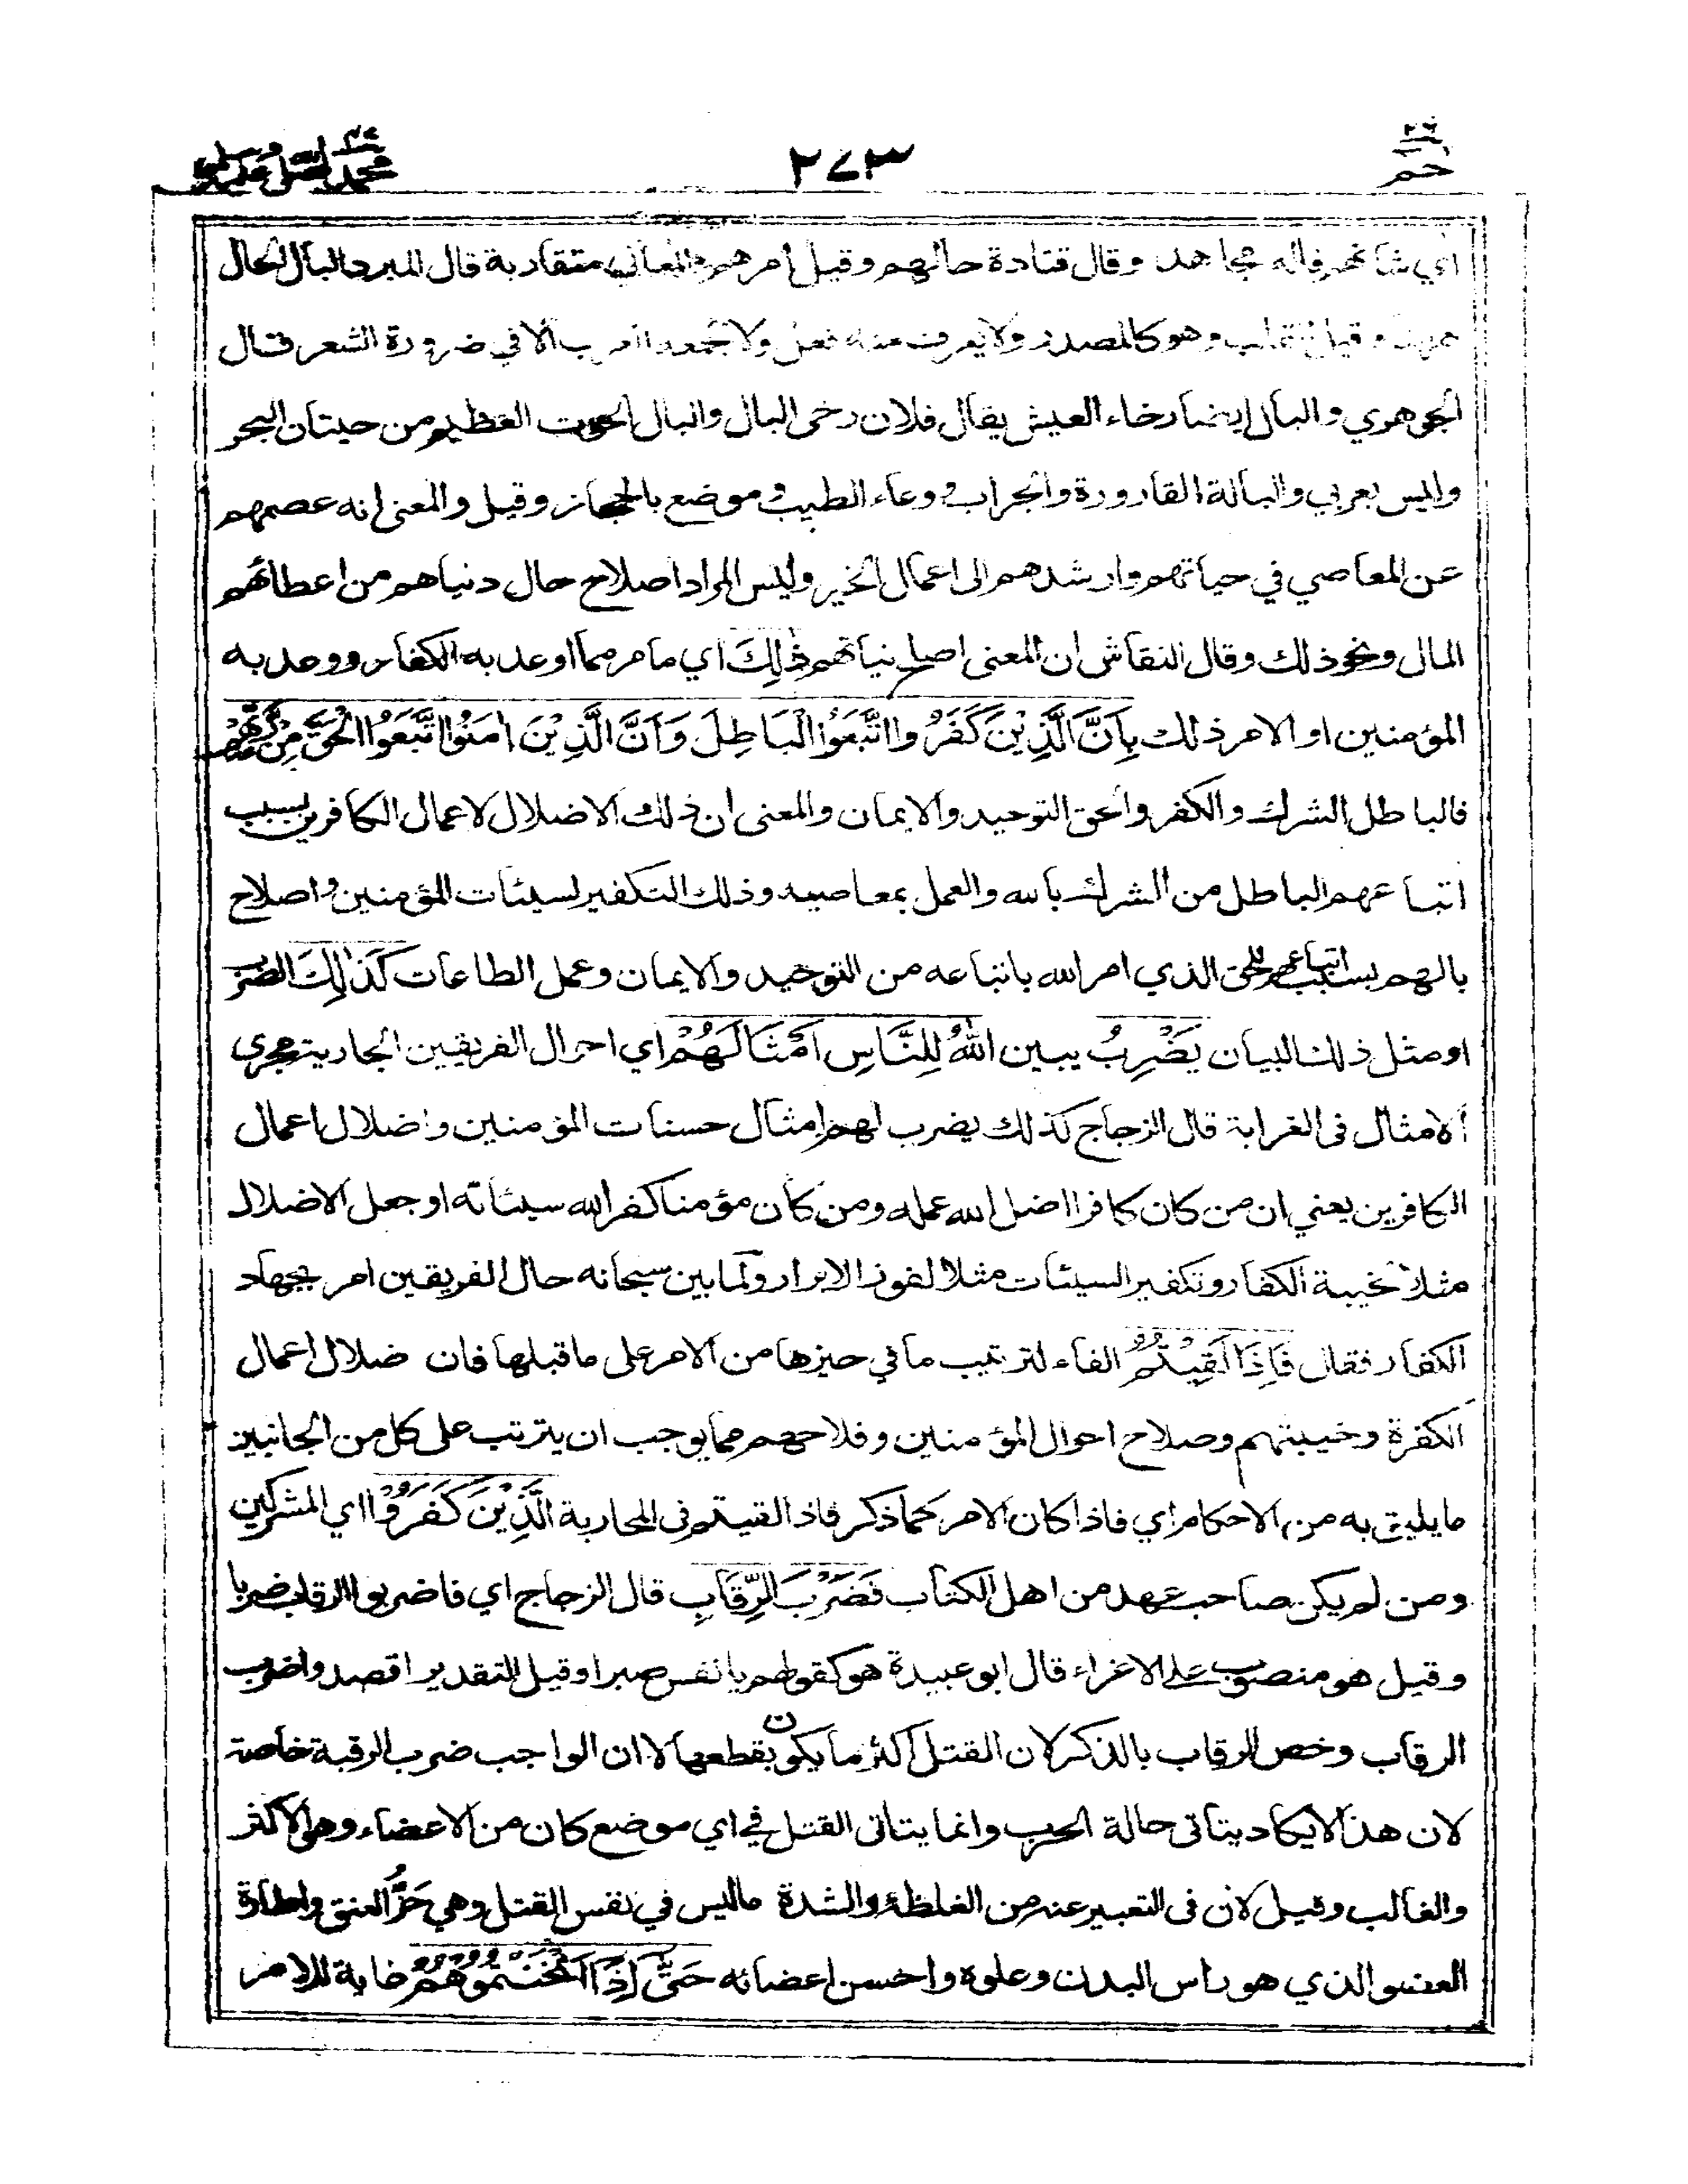 حم ٢٦
٢٧٣
محمد صلى الله عليه وسلم ٤٧
اي شانهم قاله مجاهد وقال قتادة حالهم وقيل امرهم والمعاني متقاربة قال المبرد البال الحال
ههنا وقيل القلب وهو كالمصدر ولا يعرف منه فعل ولا تجمعه العرب الا في ضرورة الشعر قال
الجوهري والبال ايضا رخاء العيش يقال فلان رخى البال والبال الحوت العظيم من حيتان البحر
وليس بعربي والبالة القارورة والجراب و وعاء الطيب و موضع بالحجاز وقيل والمعنى انه عصمهم
عن المعاصي في حياتهم وارشدهم الى اعمال الخير وليس المراد اصلاح حال دنياهم من اعطائهم
المال ونحو ذلك وقال النقاش ان المعنى اصلح نياتهم ذٰلِكَ اي ما مر مما اوعد به الكفار ووعد به
المؤمنين او الامر ذلك بِأَنَّ الَّذِيْنَ كَفَرُوا اتَّبَعُوا الْبَاطِلَ وَاَنَّ الَّذِيْنَ اٰمَنُوا اتَّبَعُوا الْحَقَّ مِنْ رَّبِّهِمْ
فالباطل الشرك والكفر والحق التوحيد والايمان والمعنى ان ذلك الاضلال لاعمال الكافرين بسبب
اتباعهم الباطل من الشرك بالله والعمل بمعاصيه وذلك التكفير لسيئات المؤمنين واصلاح
بالهم بسبب اتباعهم للحق الذي امر الله باتباعه من التوحيد والايمان وعمل الطاعات كَذٰلِكَ الضرب
او مثل ذلك البيان يَضْرِبُ يبين اللهُ لِلنَّاسِ اَمْثَالَهُمْ اي احوال الفريقين الجارية مجرى
الامثال فى الغرابة قال الزجاج كذلك يضرب لهم امثال حسنات المؤمنين واضلال اعمال
الكافرين يعني ان من كان كافرا اضل الله عمله ومن كان مؤمنا كفر الله سيئاته او جعل الاضلال
مثلا لخيبة الكفار وتكفير السيئات مثلا لفوز الابرار ولما بين سبحانه حال الفريقين امر بجهاد
الكفار فقال فَاِذَا لَقِيْتُمُ الفاء لترتيب ما في حيزها من الامر على ما قبلها فان ضلال اعمال
الكفرة وخيبتهم وصلاح احوال المؤمنين وفلاحهم مما يوجب ان يترتب على كل من الجانبين
ما يليق به من الاحكام اي فاذا كان الامر كما ذكر فاذا لقيتم فى المحاربة الَّذِيْنَ كَفَرُوْا اي المشركين
ومن لم يكن صاحب عهد من اهل الكتاب فَضَرْبَ الرِّقَابِ قال الزجاج اي فاضربوا الرقاب ضربا
وقيل هو منصوب على الاغراء قال ابو عبيدة هو كقولهم يا نفس صبرا وقيل التقدير اقصدوا ضرب
الرقاب وخص الرقاب بالذكر لان القتل اكثر ما يكون بقطعها لا ان الواجب ضرب الرقبة خاصة
لان هذا لا يكاد يتاتى حالة الحرب وانما يتاتى القتل في اي موضع كان من الاعضاء وهى الاكثر
والغالب وقيل لان فى التعبير عنه من الغلظة والشدة ما ليس في نفس القتل وهي حَزُّ العنق واطارة
العضو الذي هو راس البدن وعلوه واحسن اعضائه حَتّٰى اِذَا اَثْخَنْتُمُوْهُمْ غاية للامر